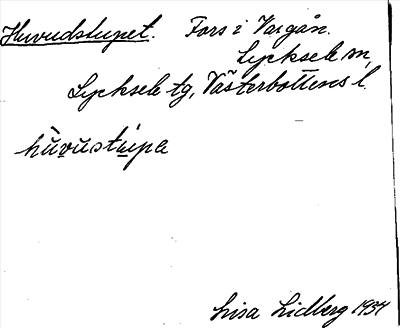 Huvudstupet. Fors i Vargån.
Lycksele sn,
Lycksele tg, Västerbottens l.
hùvustúpe
Lisa Lidberg 1934